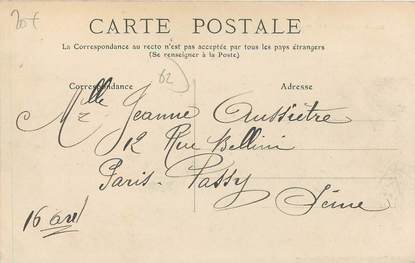 20f
CARTE POSTALE
La Correspondance au recto n'est pas acceptée par tous les pays étrangers
(Se renseigner à la Poste)
62
Correspondance Adresse
Mlle Jeanne Aussiètre
12 Rue Bellini
Paris-Passy
Seine
16